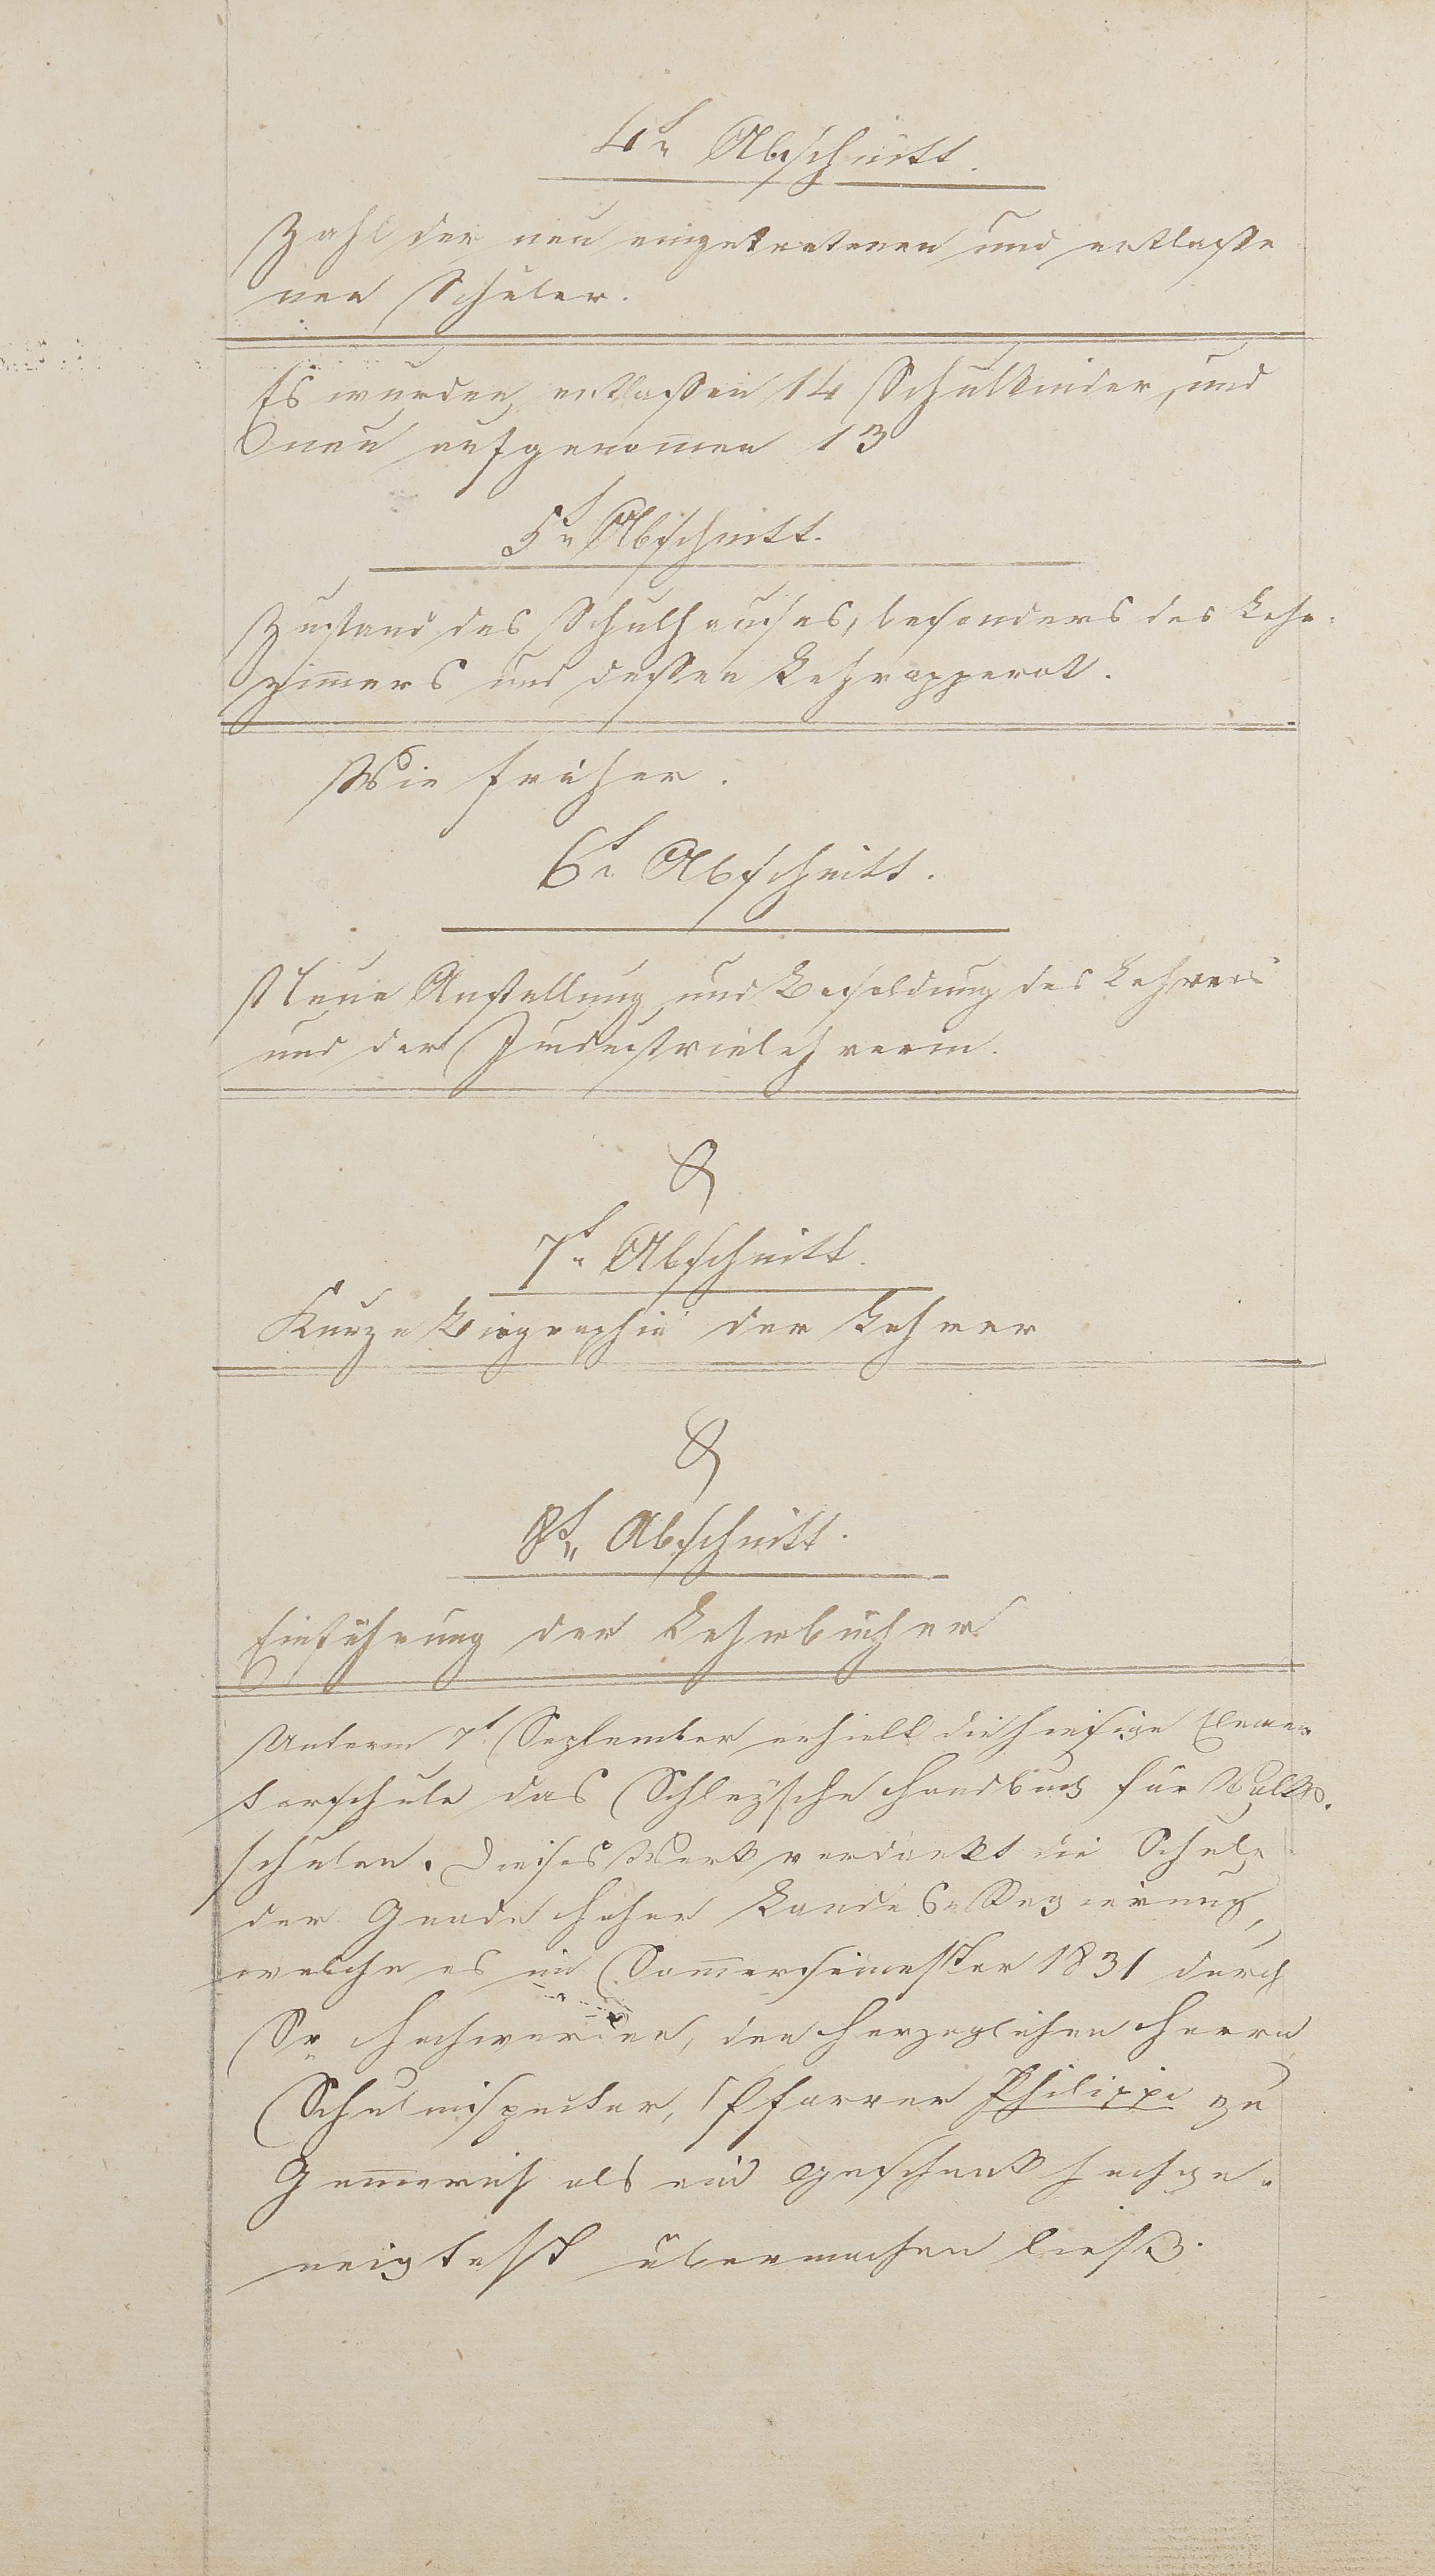 4t Abschnitt.
Zahl der neu eingetretenen und entlasse
nen Schüler.
Es wurden entlassen 14 Schulkinder, und
neu aufgenom̄en 13
5t Abschnitt.
Zustand des Schulhauses, besonders des Lehr-
zim̄ers und dessen Lehrapperat.
Wie früher.
6t Abschnitt.
Neue Anstellung und Besoldung des Lehrers
und der Industrielehrerin.
7t Abschnitt.
Kurze Biographie der Lehrer
8t Abschnitt.
Einführung der Lehrbücher
Unterm 7t September erhielt die hiesige Elemen
tarschule das Schlezsche Handbuch für Volks-
schulen. Dieses Werk verdankt die Schule
der Gnade hoher Landes-Regierung,
welche es im Som̄ersemester 1831 durch
Sr Hochwürden, den Herzoglichen Herrn
Schulinspector, Pfarrer Philippi zu
Gem̄erich als ein Geschenk hochge-
neigtest übermachen ließ.